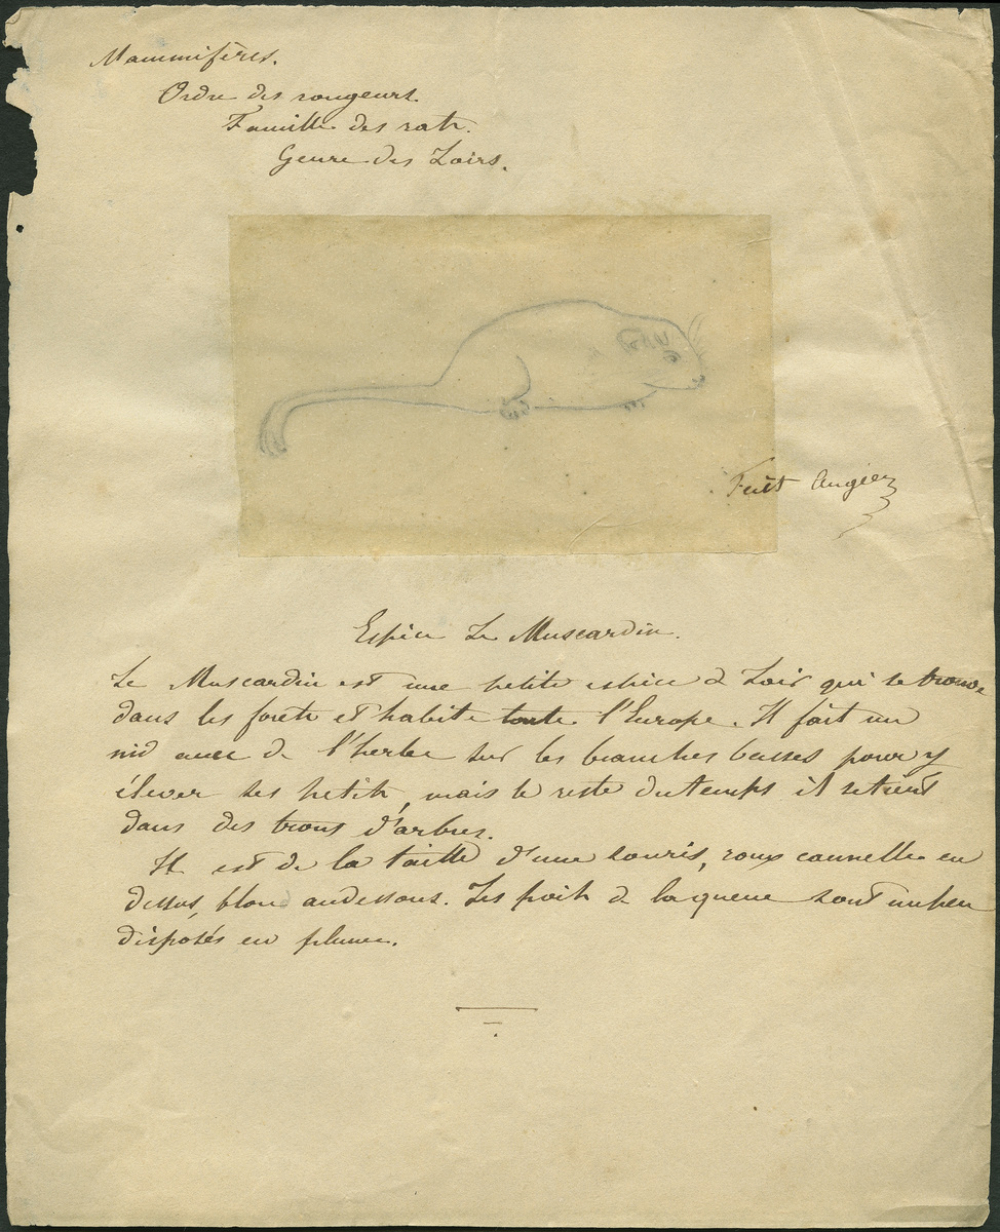 Mammifères.
Ordre des rongeurs.
Famille des rats.
Genre des Loirs.
Espèce Le Muscardin.
Le Muscardin est une petite espèce de Loir qui se trouve
dans les forêts et habite toute l'Europe. Il fait un
nid avec de l'herbe sur les branches basses pour y
élever ses petits, mais le reste du temps il se tient
dans des trous d'arbres.
Il est de la taille d'une souris, roux cannelle en
dessus, blanc au dessous. Les poils de la queue sont un peu
disposés en plume.